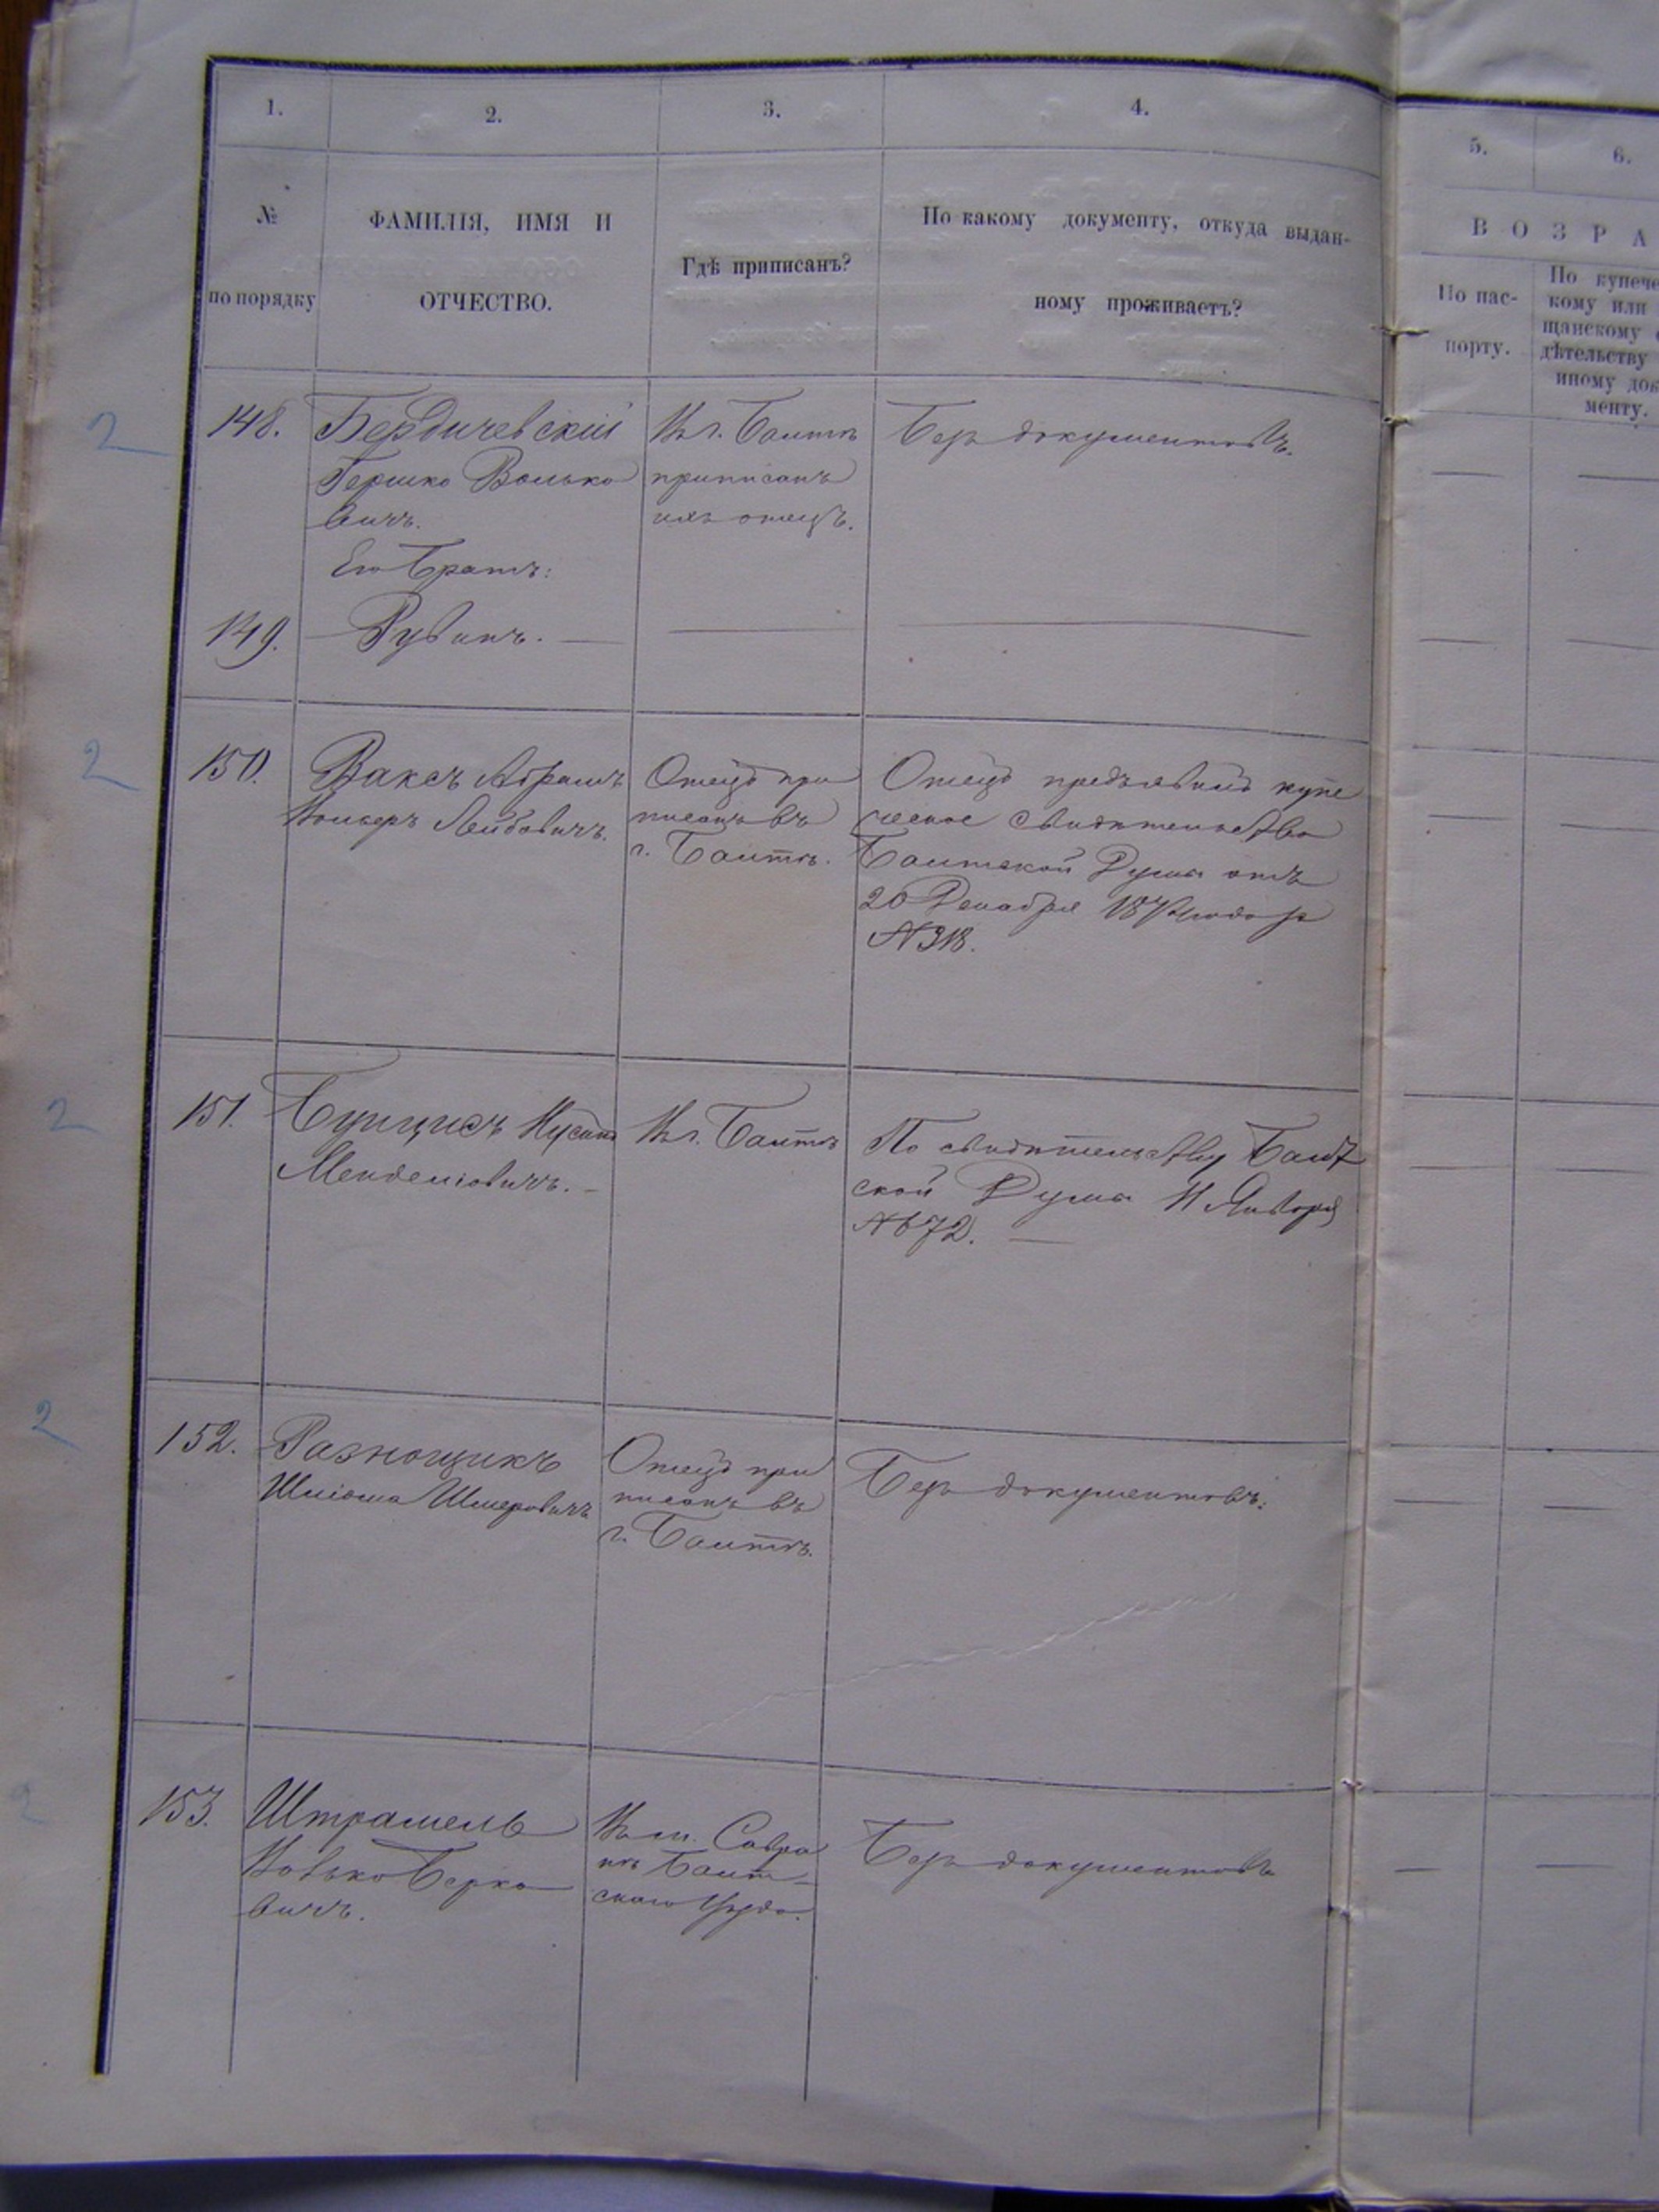 1.
2.
3.
4.
5.
6.
№
по порядку
ФАМИЛІЯ, ИМЯ И
ОТЧЕСТВО.
Гдѣ приписанъ?
По какому документу, откуда выдан-
ному проживаетъ?
ВОЗРА
По пас-
порту.
По купече
кому или
щанскому
дѣтельству
иному док
менту.
2
148.
Бердичевскій
Гершко Волько
вичъ.
Его Братъ:
Въ г. Балтѣ
приписанъ
ихъ отецъ.
Безъ документовъ.
149.
— Рувинъ. —
2
150.
Ваксъ Абрамъ
Лейбовичъ.
Отецъ при
писанъ въ
г. Балтѣ.
Отецъ предъявилъ купе
ческое свидѣтельство
Балтской Думы отъ
20 Декабря
№ 318.
2
151.
Менделіовичъ. —
Въ г. Балтѣ
По свидѣтельству Балт
ской Думы 11 Января
№ 72. —
2
152.
Разнощикъ
Шліома Шмеровичъ
Отецъ при
писанъ въ
г. Балтѣ.
Безъ документовъ.
2
153.
Штрамель
Берко
вичъ.
Въ м. Савра
нѣ Балт-
скаго Уѣзда.
Безъ документовъ